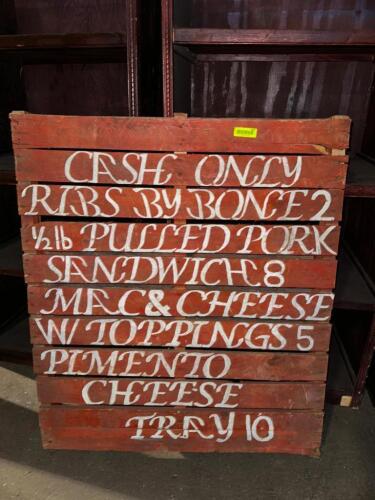 CASH ONLY
RIBS BY BONE 2
1/2 lb PULLED PORK
SANDWICH 8
MAC & CHEESE
W/ TOPPINGS 5
PIMENTO
CHEESE
TRAY 10